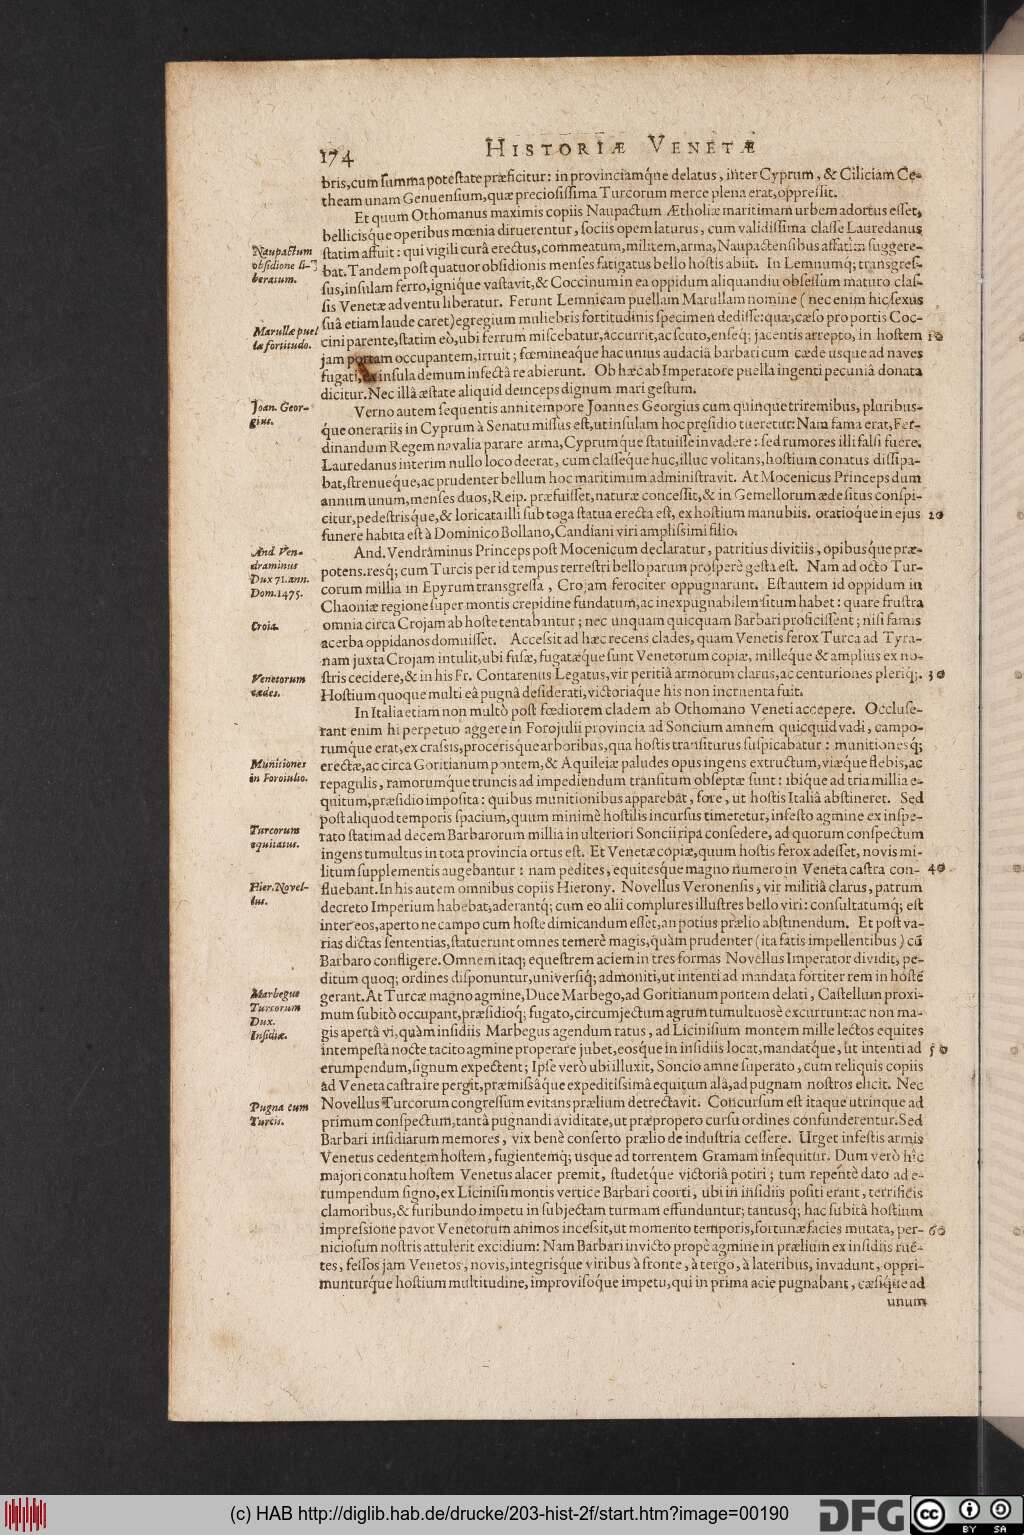 174 HISTORIÆ VENETÆ
bris, cum summa potestate præficitur: in provinciamq́ue delatus, inter Cyprum, & Ciliciam Ce-
theam unam Genuensium, quæ preciosissima Turcorum merce plena erat, oppressit.
Et quum Othomanus maximis copiis Naupactum Ætholiæ maritimam urbem adortus esset,
bellicisq́ue operibus mœnia diruerentur, sociis opem laturus, cum validissima classe Lauredanus
Naupactum
obsidione li-
beratum.
statim affuit: qui vigili curâ erectus, commeatum, militem, arma, Naupactensibus affatim suggere-
bat. Tandem post quatuor obsidionis menses fatigatus bello hostis abiit. In Lemnumq; transgres-
sus, insulam ferro, ignique vastavit, & Coccinum in ea oppidum aliquandiu obsessum maturo clas-
sis Venetæ adventu liberatur. Ferunt Lemnicam puellam Marullam nomine (nec enim hic sexus
Marullæ puel
læ fortitudo.
suâ etiam laude caret) egregium muliebris fortitudinis specimen dedisse: quæ, cæso pro portis Coc-
cini parente, statim eò, ubi ferrum miscebatur, accurrit, ac scuto, enseq; jacentis arrepto, in hostem 10
jam portam occupantem, irruit; fœmineaque hac unius audaciâ barbari cum cæde usque ad naves
fugati, ex insula demum infectâ re abierunt. Ob hæc ab Imperatore puella ingenti pecuniâ donata
dicitur. Nec illâ æstate aliquid deinceps dignum mari gestum.
Joan. Geor-
gius.
Verno autem sequentis anni tempore Joannes Georgius cum quinque triremibus, pluribus-
q́ue onerariis in Cyprum à Senatu missus est, ut insulam hoc præsidio tueretur: Nam fama erat, Fer-
dinandum Regem navalia parare arma, Cyprumq́ue statuisse invadere: sed rumores illi falsi fuere.
Lauredanus interim nullo loco deerat, cum classeq́ue huc, illuc volitans, hostium conatus dissipa-
bat, strenueq́ue, ac prudenter bellum hoc maritimum administravit. At Mocenicus Princeps dum
annum unum, menses duos, Reip. præfuisset, naturæ concessit, & in Gemellorum æde situs conspi-
citur, pedestrisq́ue, & loricata illi sub toga statua erecta est, ex hostium manubiis. oratioq́ue in ejus 20
funere habita est à Dominico Bollano, Candiani viri amplissimi filio.
And. Ven-
draminus
Dux 71. ann.
Dom. 1475.
And. Vendraminus Princeps post Mocenicum declaratur, patritius divitiis, opibusq́ue præ-
potens. resq; cum Turcis per id tempus terrestri bello parum prosperè gesta est. Nam ad octo Tur-
corum millia in Epyrum transgressa, Crojam ferociter oppugnarunt. Est autem id oppidum in
Chaoniæ regione super montis crepidine fundatum, ac inexpugnabilem situm habet: quare frustra
Croia.
omnia circa Crojam ab hoste tentabantur; nec unquam quicquam Barbari profecissent; nisi famis
acerba oppidanos domuisset. Accessit ad hæc recens clades, quam Venetis ferox Turca ad Tyra-
nam juxta Crojam intulit, ubi fusæ, fugatæq́ue sunt Venetorum copiæ, milleq́ue & amplius ex no-
Venetorum
cædes.
stris cecidere, & in his Fr. Contarenus Legatus, vir peritiâ armorum clarus, ac centuriones pleriq;. 30
Hostium quoque multi eâ pugnâ desiderati, victoriaq́ue his non incruenta fuit.
In Italia etiam non multò post fœdiorem cladem ab Othomano Veneti accepere. Occluse-
rant enim hi perpetuo aggere in Forojulii provincia ad Soncium amnem quicquid vadi, campo-
rumque erat, ex crassis, procerisque arboribus, qua hostis transiturus suspicabatur: munitionesq́;
Munitiones
in Foroiulio.
erectæ, ac circa Goritianum pontem, & Aquileiæ paludes opus ingens extructum, viæque flebis, ac
repagulis, ramorumq́ue truncis ad impediendum transitum obseptæ sunt: ibique ad tria millia e-
quitum, præsidio imposita: quibus munitionibus apparebat, fore, ut hostis Italiâ abstineret. Sed
post aliquod temporis spacium, quum minimè hostilis incursus timeretur, infesto agmine ex inspe-
Turcorum
equitatus.
rato statim ad decem Barbarorum millia in ulteriori Soncii ripa consedere, ad quorum conspectum
ingens tumultus in tota provincia ortus est. Et Venetæ copiæ, quum hostis ferox adesset, novis mi-
litum supplementis augebantur: nam pedites, equitesque magno numero in Veneta castra con- 40
Hier. Novel-
lus.
fluebant. In his autem omnibus copiis Hierony. Novellus Veronensis, vir militiâ clarus, patrum
decreto Imperium habebat, aderantq́; cum eo alii complures illustres bello viri: consultatumq́; est
inter eos, aperto ne campo cum hoste dimicandum esset, an potius prælio abstinendum. Et post va-
rias dictas sententias, statuerunt omnes temerè magis, quàm prudenter (ita fatis impellentibus) cũ
Barbaro confligere. Omnem itaq; equestrem aciem in tres formas Novellus Imperator dividit, pe-
ditum quoq; ordines disponuntur, universiq́; admoniti, ut intenti ad mandata fortiter rem in hostẽ
Marbegus
Turcorum
Dux.
Insidiæ.
gerant. At Turcæ magno agmine, Duce Marbego, ad Goritianum pontem delati, Castellum proxi-
mum subitò occupant, præsidioq́; fugato, circumjectum agrum tumultuosè excurrunt: ac non ma-
gis apertâ vi, quàm insidiis Marbegus agendum ratus, ad Licinisium montem mille lectos equites
intempestâ nocte tacito agmine properare jubet, eosq́ue in insidiis locat, mandatq́ue, ut intenti ad 50
erumpendum, signum expectent; Ipse verò ubi illuxit, Soncio amne superato, cum reliquis copiis
ad Veneta castra ire pergit, præmissâque expeditissimâ equitum alâ, ad pugnam nostros elicit. Nec
Pugna cum
Turcis.
Novellus Turcorum congressum evitans prælium detrectavit. Concursum est itaque utrinque ad
primum conspectum, tantâ pugnandi aviditate, ut præpropero cursu ordines confunderentur. Sed
Barbari insidiarum memores, vix benè conserto prælio de industria cessere. Urget infestis armis
Venetus cedentem hostem, fugientemq́; usque ad torrentem Gramam insequitur. Dum verò hîc
majori conatu hostem Venetus alacer premit, studetq́ue victoriâ potiri; tum repentè dato ad e-
rumpendum signo, ex Licinisii montis vertice Barbari coorti, ubi in insidiis positi erant, terrificis
clamoribus, & furibundo impetu in subjectam turmam effunduntur; tantusq́; hac subitâ hostium
impressione pavor Venetorum animos incessit, ut momento temporis, fortunæ facies mutata, per- 60
niciosum nostris attulerit excidium: Nam Barbari invicto propè agmine in prælium ex insidiis ruẽ-
tes, fessos jam Venetos, novis, integrisque viribus à fronte, à tergo, à lateribus, invadunt, oppri-
munturq́ue hostium multitudine, improvisoque impetu, qui in prima acie pugnabant, cæsiq́ue ad
unum
(c) HAB http://diglib.hab.de/drucke/203-hist-2f/start.htm?image=00190
DFG
cc BY SA